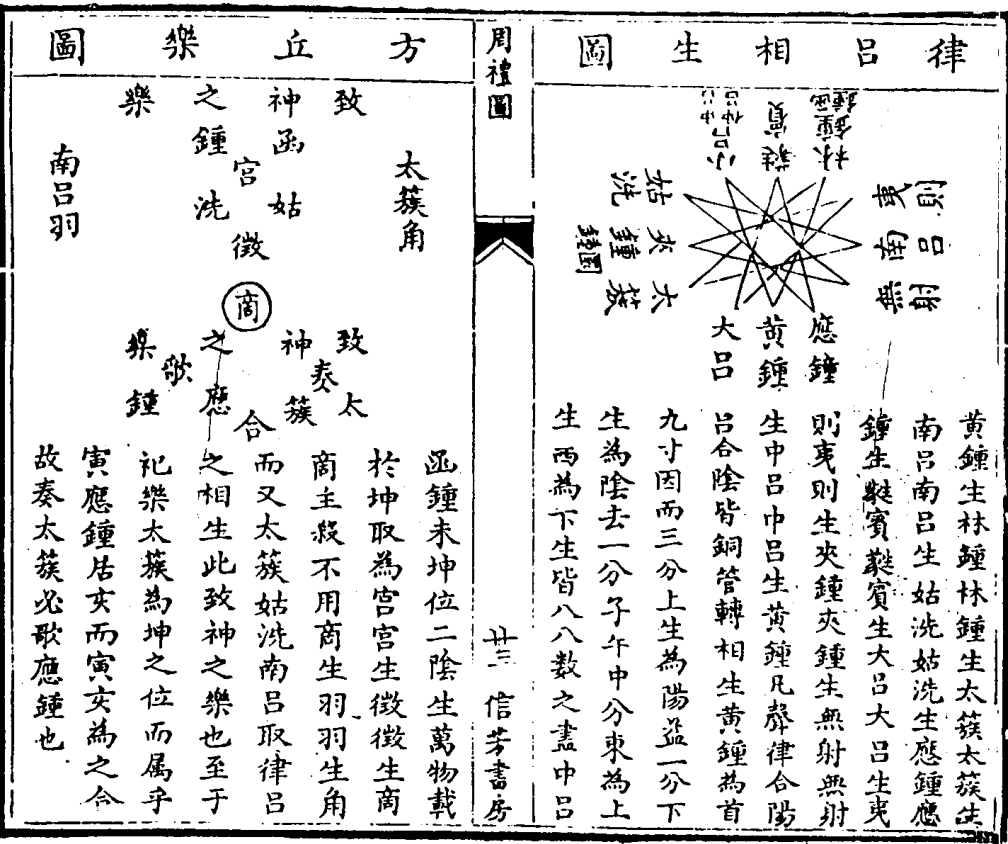 律呂相生圖
林鍾函鍾
蕤賓
小呂中呂仲呂
姑洗
夾鍾圜鍾
太蔟
夷則
南呂
無射
應鐘
黃鍾
大呂
黃鍾生林鍾林鍾生太蔟太蔟生
南呂南呂生姑洗姑洗生應鍾應
鍾生蕤賓蕤賓生大呂大呂生夷
則夷則生夾鍾夾鍾生無射無射
生中呂中呂生黃鍾凡聲律合陽
呂合陰皆銅管轉相生黃鍾為首
九寸因而三分上生為陽益一分下
生為陰去一分子午中分東為上
生西為下生皆八八數之盡中呂
周禮圖
廿三
信芳書房
方丘樂圖
致神之樂
函鍾
宮
姑洗
徵
太蔟角
南呂羽
商
致神之樂
奏太蔟
歌應鍾
合
函鍾未坤位二陰生萬物載
於坤取為宮宮生徵徵生商
商主殺不用商生羽羽生角
而又太蔟姑洗南呂取律呂
之相生此致神之樂也至于
祀樂太蔟為坤之位而属乎
寅應鍾居亥而寅亥為之合
故奏太蔟必歌應鍾也